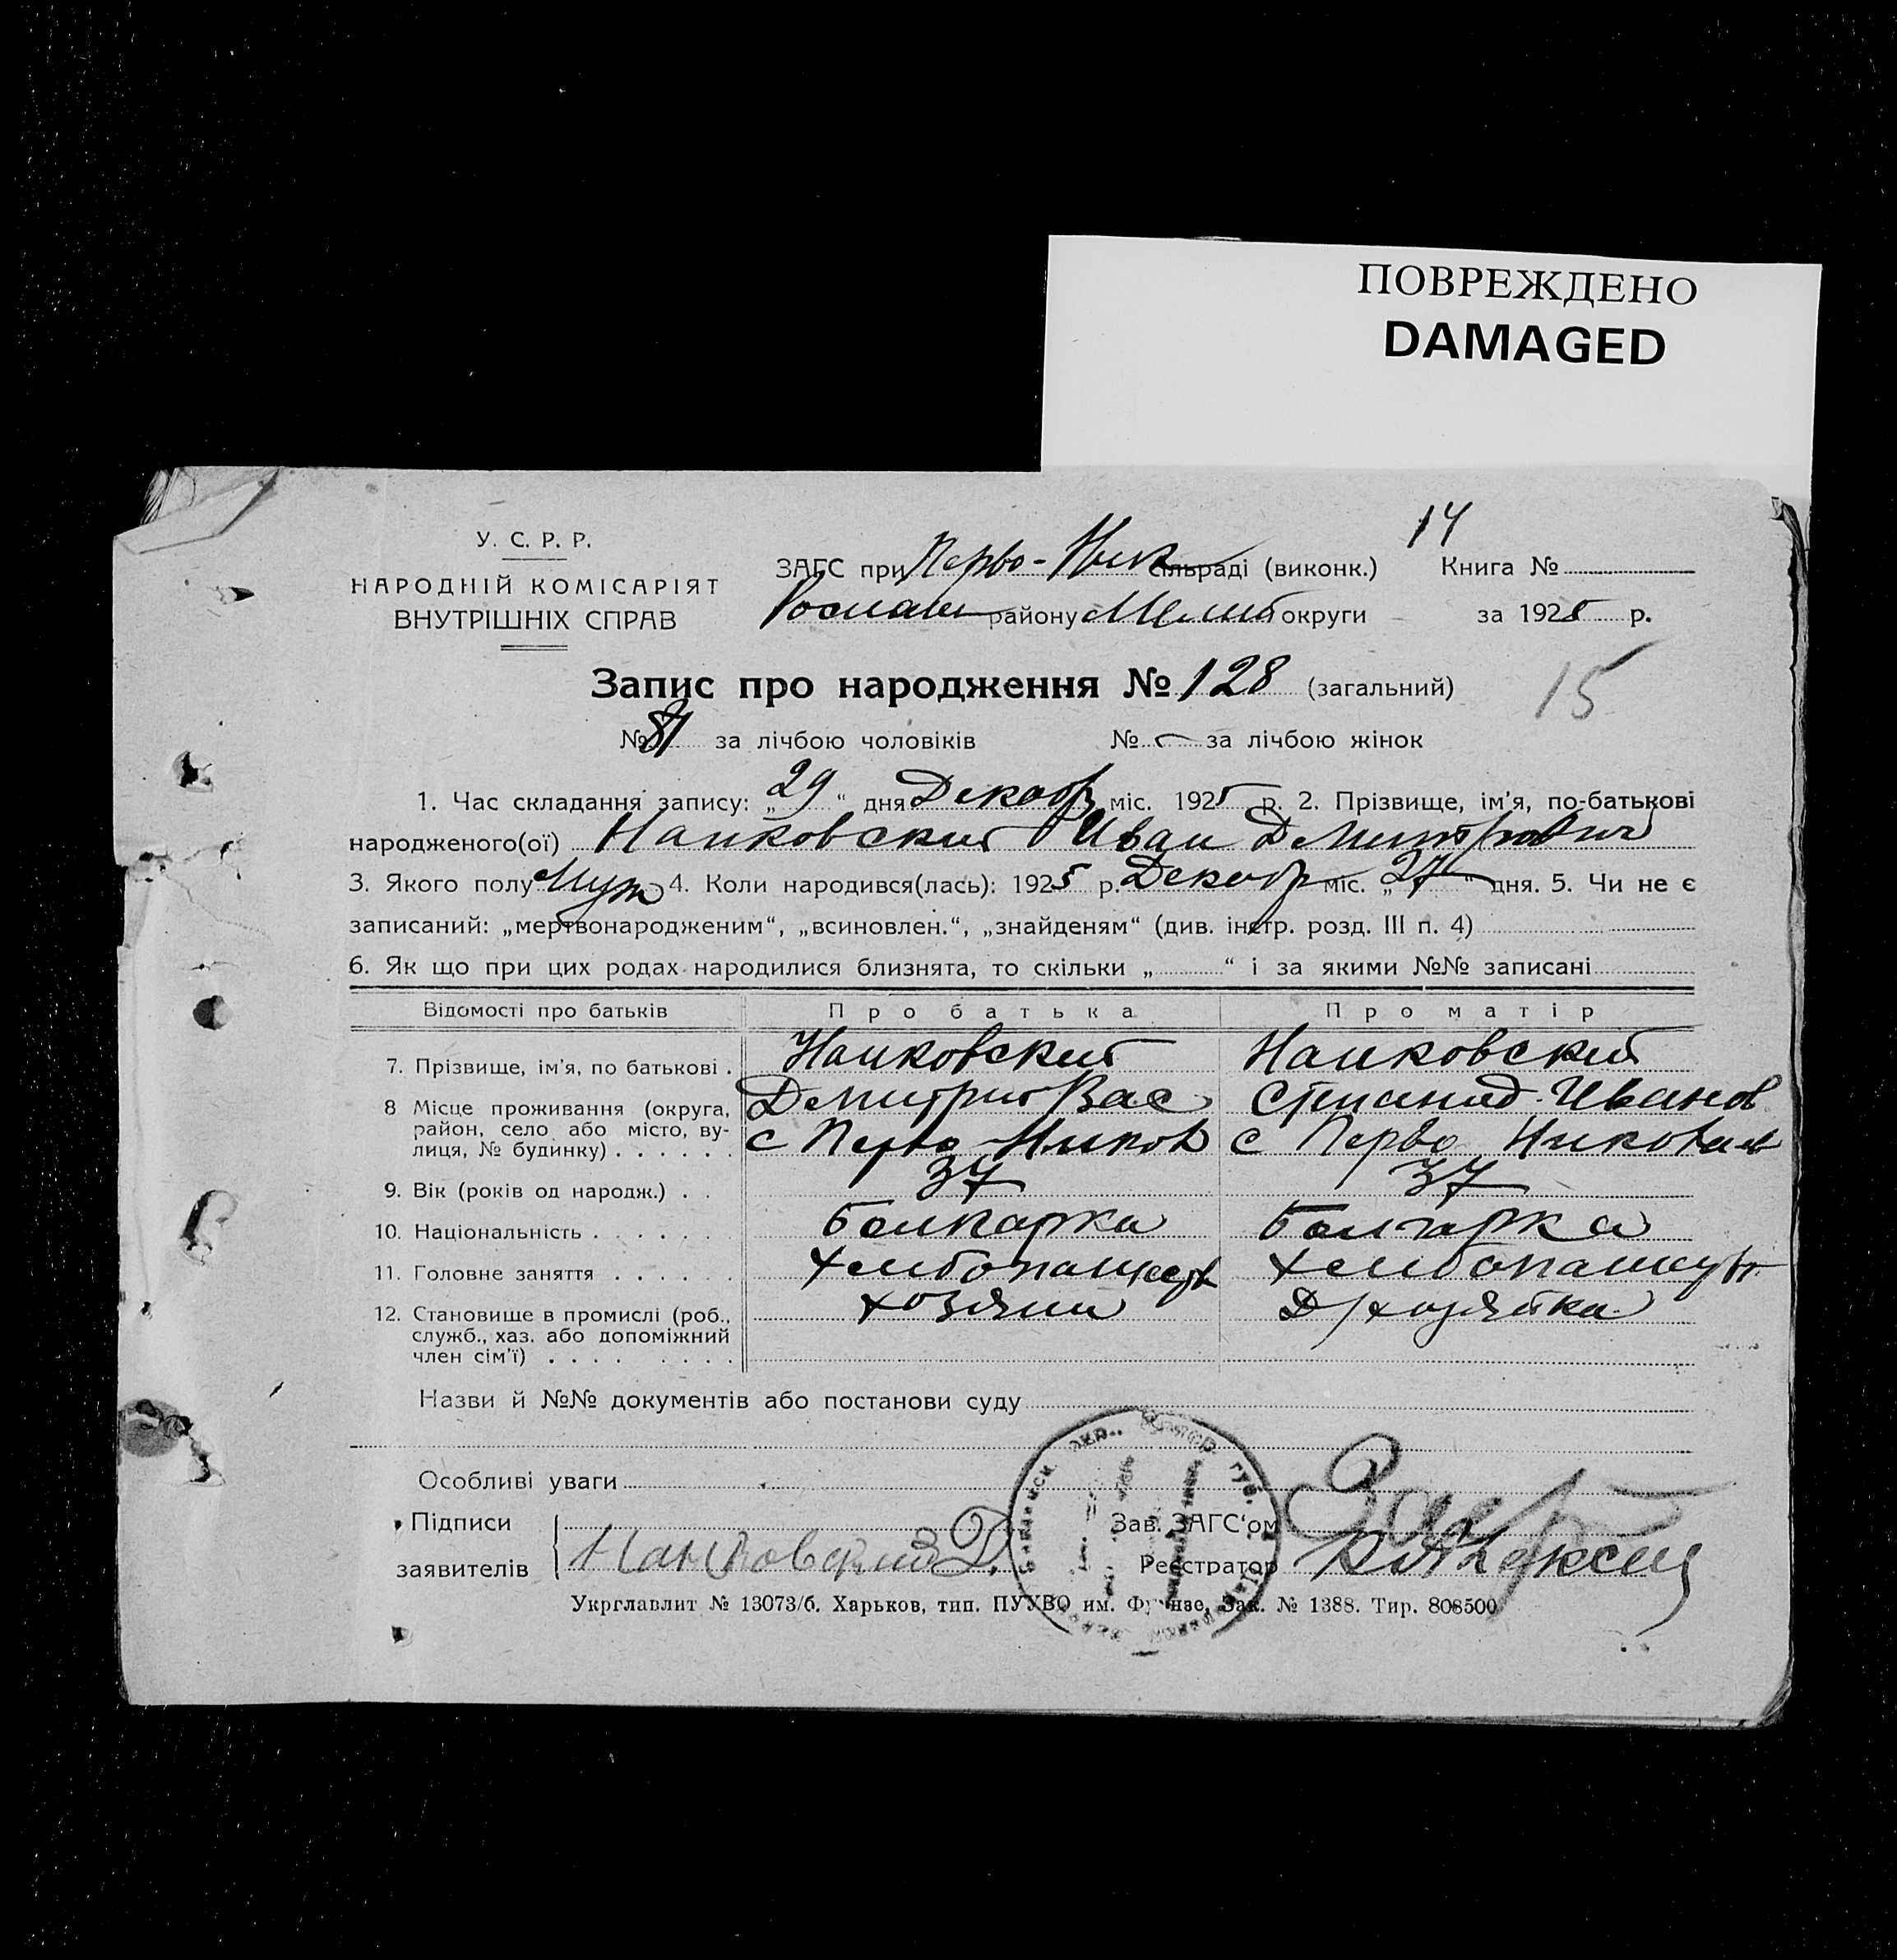 ПОВРЕЖДЕНО
DAMAGED
14
У. С. Р. Р.
НАРОДНІЙ КОМІСАРІЯТ
ВНУТРІШНІХ СПРАВ
ЗАГС при Перво-Ник сільраді (виконк.) Книга №
району Мелит округи за 1925 р.
Запис про народження № 128 (загальний)
15
№ 81 за лічбою чоловіків № — за лічбою жінок
1. Час складання запису: „29“ дня Декабр міс. 1925 р. 2. Прізвище, ім'я, по-батькові
народженого(ої) Найковский Иван Дмитрович
3. Якого полу Муж 4. Коли народився(лась): 1925 р. Декабр міс. „27“ дня. 5. Чи не є
записаний: „мертвонародженим“, „всиновлен.“, „знайденям“ (див. інстр. розд. III п. 4)
6. Як що при цих родах народилися близнята, то скільки „ “ і за якими №№ записані
Відомості про батьків Про батька Про матір
7. Прізвище, ім'я, по батькові . Найковский Найковский
Дмитрий Вас Степанид Иванов
8 Місце проживання (округа, район, село або місто, вулиця, № будинку) . . . . . . с Перво-Никол с Перво Николаев
9. Вік (років од народж.) . . 37 37
10. Національність . . . . . . . Болгарка Болгарка
11. Головне заняття . . . . . . Хлибопашест Хлибопашеств
12. Становище в промислі (роб., служб., хаз. або допоміжний член сім'ї) . . . . . . . . хозяин Д/хозяйка
Назви й №№ документів або постанови суду
Особливі уваги
Підписи
заявителів Найковский Д.
Зав. ЗАГС'ом
Реєстратор
Укрглавлит № 13073/б. Харьков, тип. ПУУВО им. Фрунзе, Зак. № 1388. Тир. 808500